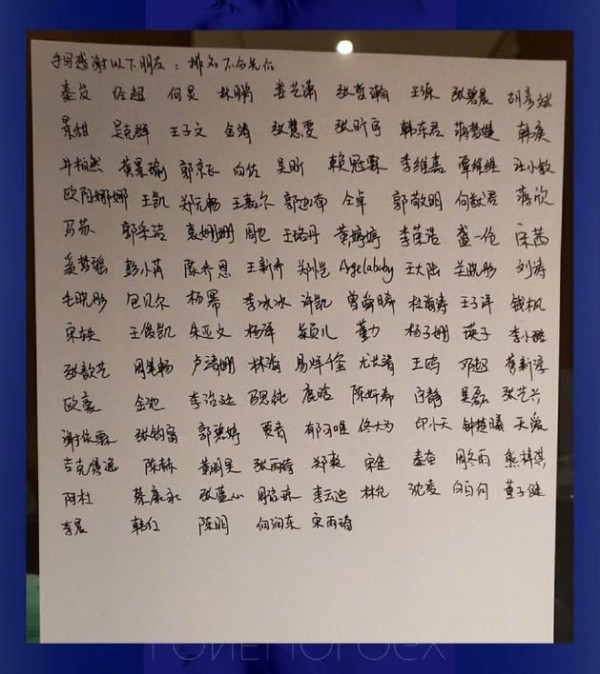 手写感谢以下朋友：排名不分先后
秦岚 任超 何炅 林鹏 张哲瀚 王源 张碧晨 胡彦斌
景甜 吴克群 王子文 金靖 张慧雯 张昕宇 韩东君 蒋梦婕 韩庚
井柏然 黄景瑜 郭京飞 向佐 吴昕 赖冠霖 李维嘉 谭维维 汪小敏
欧阳娜娜 王凯 郑元畅 王嘉尔 郭迦南 仝卓 郭敬明 何猷君 蒋欣
马苏 郭采洁 袁姗姗 周也 王珞丹 黄婷婷 李荣浩 盛一伦 宋茜
孟美岐 彭小苒 陈乔恩 王新乔 郑恺 Angelababy 王大陆 关晓彤 刘涛
毛晓彤 包贝尔 杨幂 李冰冰 许凯 曾舜晞 杜海涛 王子异 钱枫
宋轶 王俊凯 朱亚文 杨洋 董力 杨子姗 瑛子 李小璐
张歆艺 周笔畅 卢靖姗 林海 易烊千玺 尤长靖 王鸥 邓超 黄新淳
欧豪 金池 李治廷 鹿晗 陈妍希 宁静 吴磊 张艺兴
谢依霖 张钧甯 郭碧婷 贾青 郁可唯 佟大为 印小天 钟楚曦 天爱
吉克隽逸 陈赫 黄圣依 张雨绮 郑爽 宋佳 秦奋 周冬雨 熊梓淇
阿杜 蔡康永 张蓝心 周洁琼 李云迪 林允 沈凌 白百何 董子健
李晨 韩红 陈明 何润东 宋雨琦